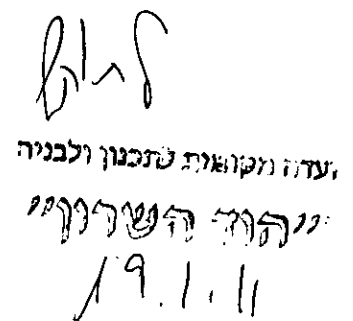 ועדה מקומית לתכנון ולבניה
"הוד השרון"
19.1.11